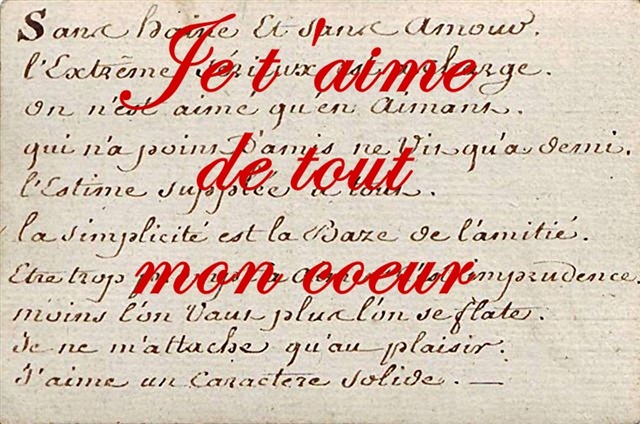 Je t'aime
de tout
mon coeur
Sans haine Et sans amour.
l'Extrême sérieux est a charge.
on n'est aimé qu'en aimant.
qui n'a point d'amis ne Vit qu'a demi.
l'Estime supplée a tout.
la simplicité est la Baze de l'amitié.
Etre trop imprudence.
moins l'on Vaut plus l'on se flate.
Je ne m'attache qu'au plaisir.
J'aime un caractere solide. —